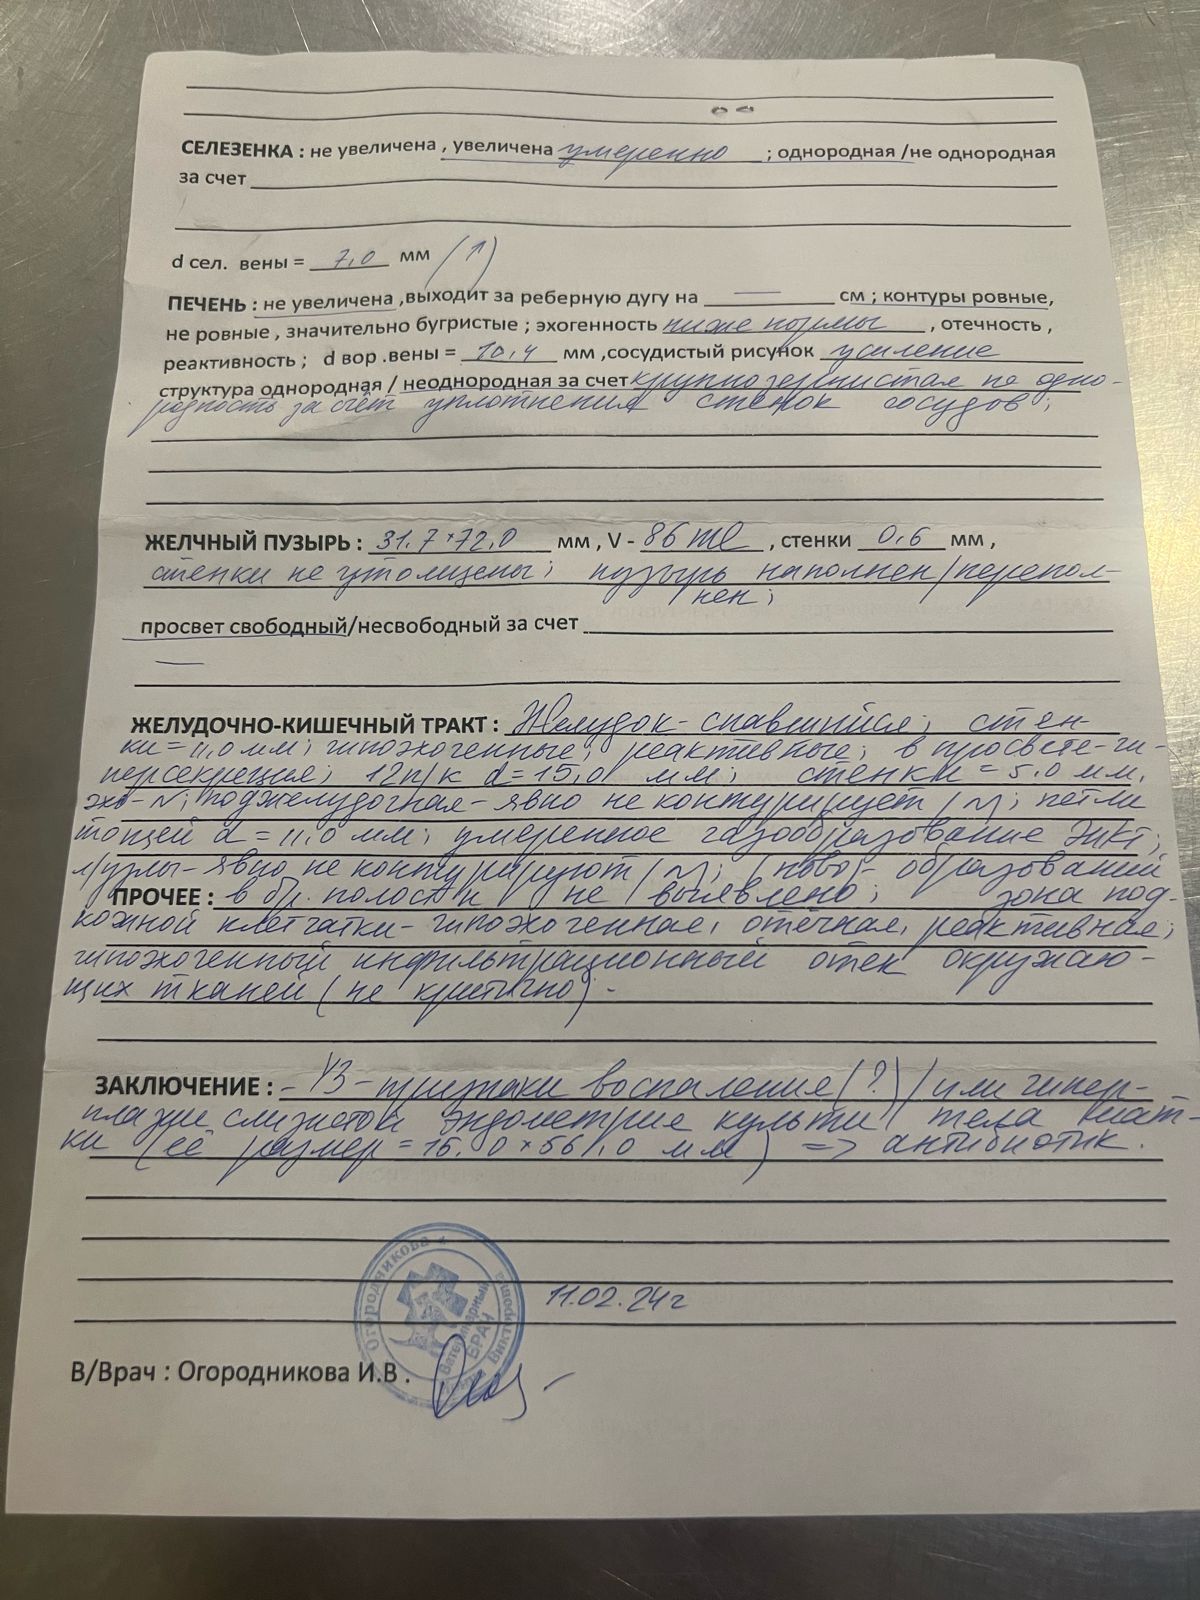 СЕЛЕЗЕНКА : не увеличена , увеличена умеренно ; однородная /не однородная
за счет
d сел. вены = 7,0 мм (↑)
ПЕЧЕНЬ : не увеличена ,выходит за реберную дугу на — см ; контуры ровные,
не ровные , значительно бугристые ; эхогенность ниже нормы , отечность ,
реактивность ; d вор .вены = 10,4 мм ,сосудистый рисунок усиление
структура однородная / неоднородная за счет крупнозернистая не одно-
родность за счёт уплотнения стенок сосудов;
ЖЕЛЧНЫЙ ПУЗЫРЬ : 31.7×72.0 мм , V - 86 ml , стенки 0,6 мм ,
стенки не утолщены; пузырь наполнен/перепол-
нен;
просвет свободный/несвободный за счет
—
ЖЕЛУДОЧНО-КИШЕЧНЫЙ ТРАКТ : Желудок-спавшийся; стен-
ки = 11,0 мм; гипоэхогенные, реактивные; в просвете-ги-
персекреция; 12п/к d=15,0 мм; стенки = 5.0 мм,
эхо-N; поджелудочная-явно не контурирует/N; петли
тощей d = 11,0 мм; умеренное газообразование ЖКТ;
л/узлы-явно не контурируют/N; (ново)- образований
ПРОЧЕЕ : в бр. полости не выявлено; зона под-
кожной клетчатки- гипоэхогенная, отечная, реактивная;
гипоэхогенный инфильтрационный отек окружаю-
щих тканей (не критично).
ЗАКЛЮЧЕНИЕ : - УЗ-признаки воспаления(?)/или гипер-
плазии слизистой эндометрия культи тела мат-
ки (её размер = 15.0×56,0 мм) => антибиотик.
Огородникова
Виктровна
Ветеринарный
ВРАЧ
11.02.24г
В/Врач : Огородникова И.В .